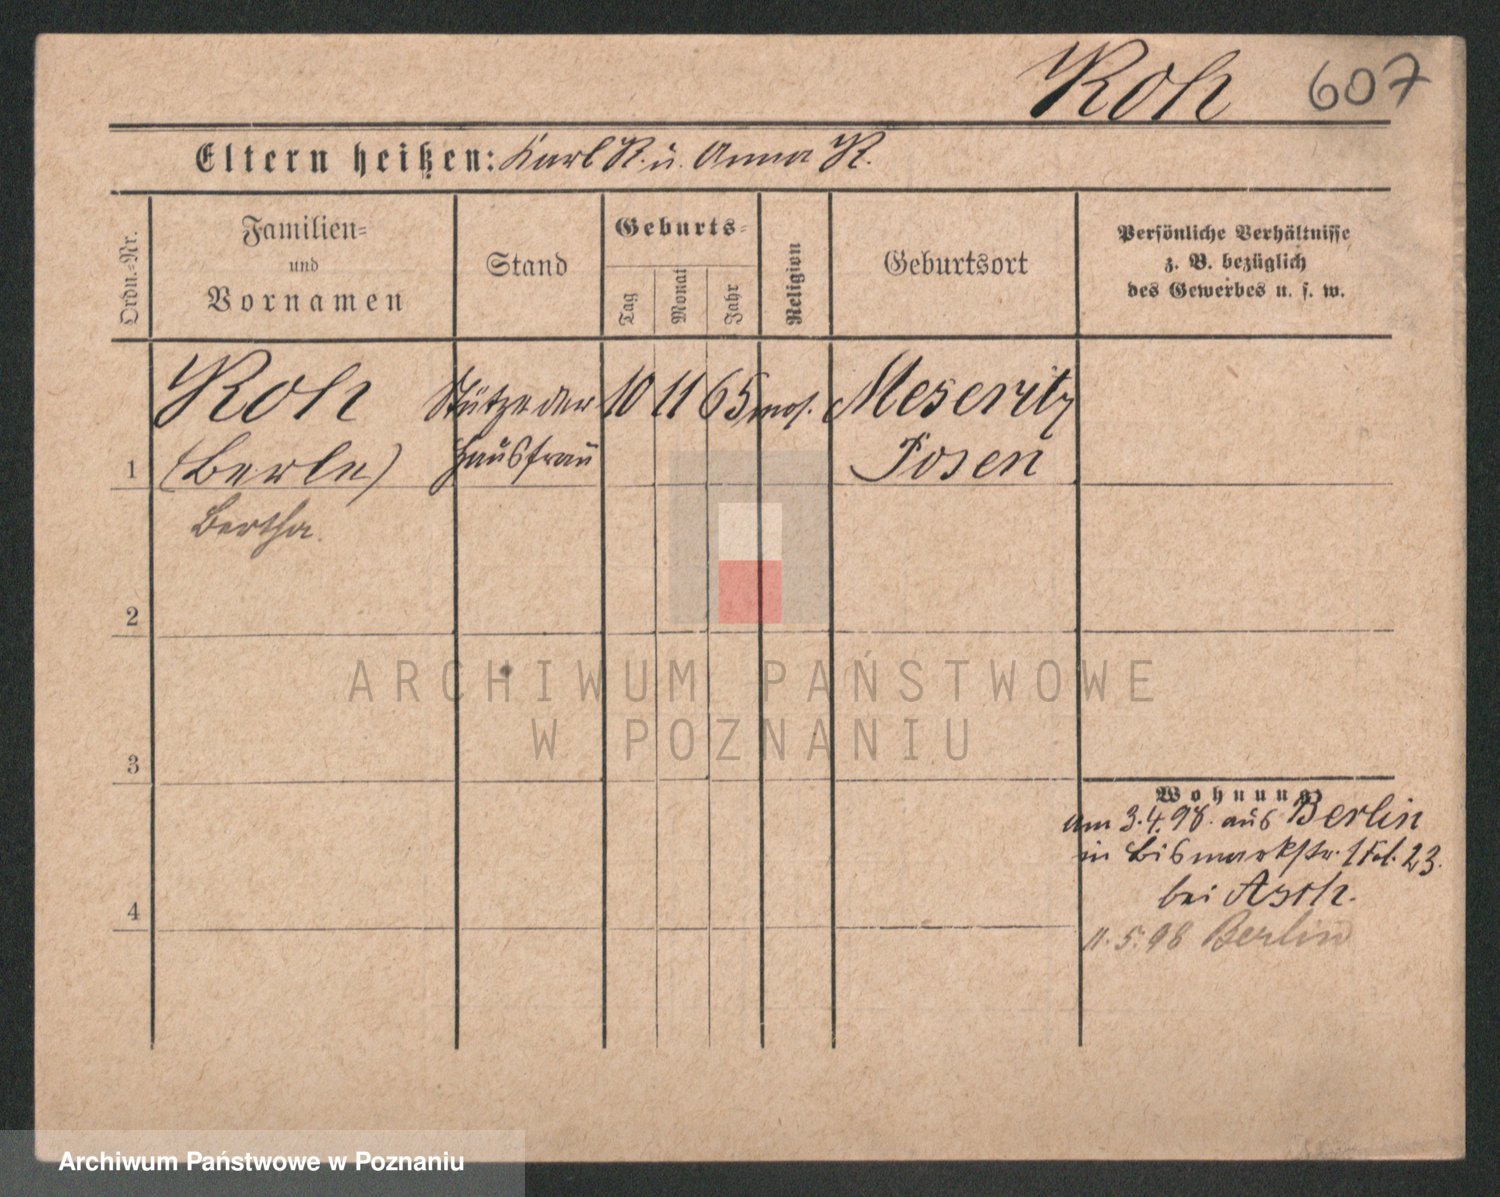 Roh 607
Eltern heißen: Karl R. u. Anna R.
Ordn.-Nr.
Familien-
und
Vornamen
Stand
Geburts-
Tag
Monat
Jahr
Religion
Geburtsort
Persönliche Verhältnisse
z. B. bezüglich
des Gewerbes u. s. w.
Roh Stütze der 10 11 65 mos. Meseritz
1 (Berle) Hausfrau Posen
Bertha.
2
ARCHIWUM PAŃSTWOWE
W POZNANIU
3
Wohnung
am 3.4.98. aus Berlin
in Bismarkstr. 1 23.
bei Asch.
4
11.5.98 Berlin
Archiwum Państwowe w Poznaniu